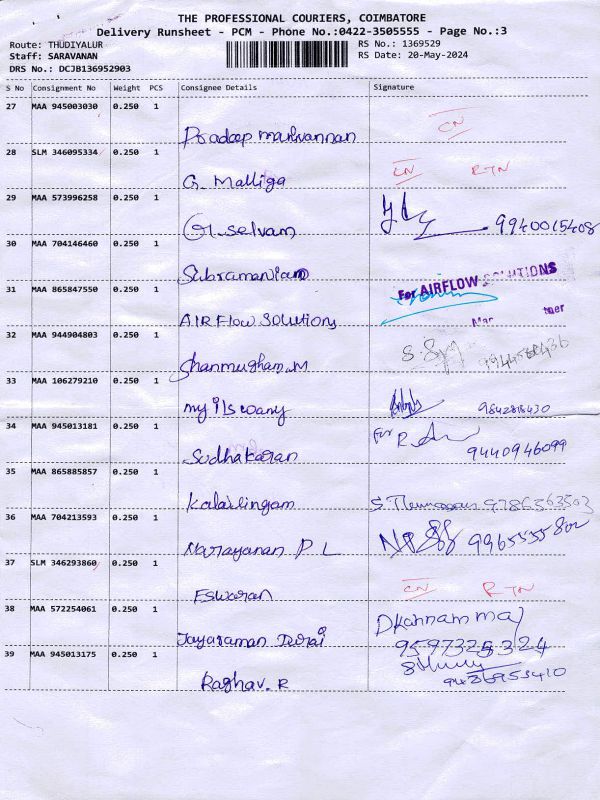 THE PROFESSIONAL COURIERS, COIMBATORE
Delivery Runsheet - PCM - Phone No.:0422-3505555 - Page No.:3
Route: THUDIYALUR
RS No.: 1369529
Staff: SARAVANAN
RS Date: 20-May-2024
DRS No.: DCJB136952903
S No Consignment No Weight PCS Consignee Details Signature
27 MAA 945003030 0.250 1
CN
Pradeep Marivannan
28 SLM 346095334 0.250 1
CN RTN
G. Malliga
29 MAA 573996258 0.250 1
G. Selvam 9940015408
30 MAA 704146460 0.250 1
Subramaniam
For AIRFLOW SOLUTIONS
31 MAA 865847550 0.250 1
AIRFlow SOLUTIONS
32 MAA 944904803 0.250 1
Shanmugham.M
33 MAA 106279210 0.250 1
9842818430
34 MAA 945013181 0.250 1
For
Sudhakaran 9440946099
35 MAA 865885857 0.250 1
Kalailingam 9786563503
36 MAA 704213593 0.250 1
Narayanan P L
37 SLM 346293860 0.250 1
CN RTN
Eswaran
38 MAA 572254061 0.250 1
Jayaraman Durai 9597325324
39 MAA 945013175 0.250 1
Raghav. R